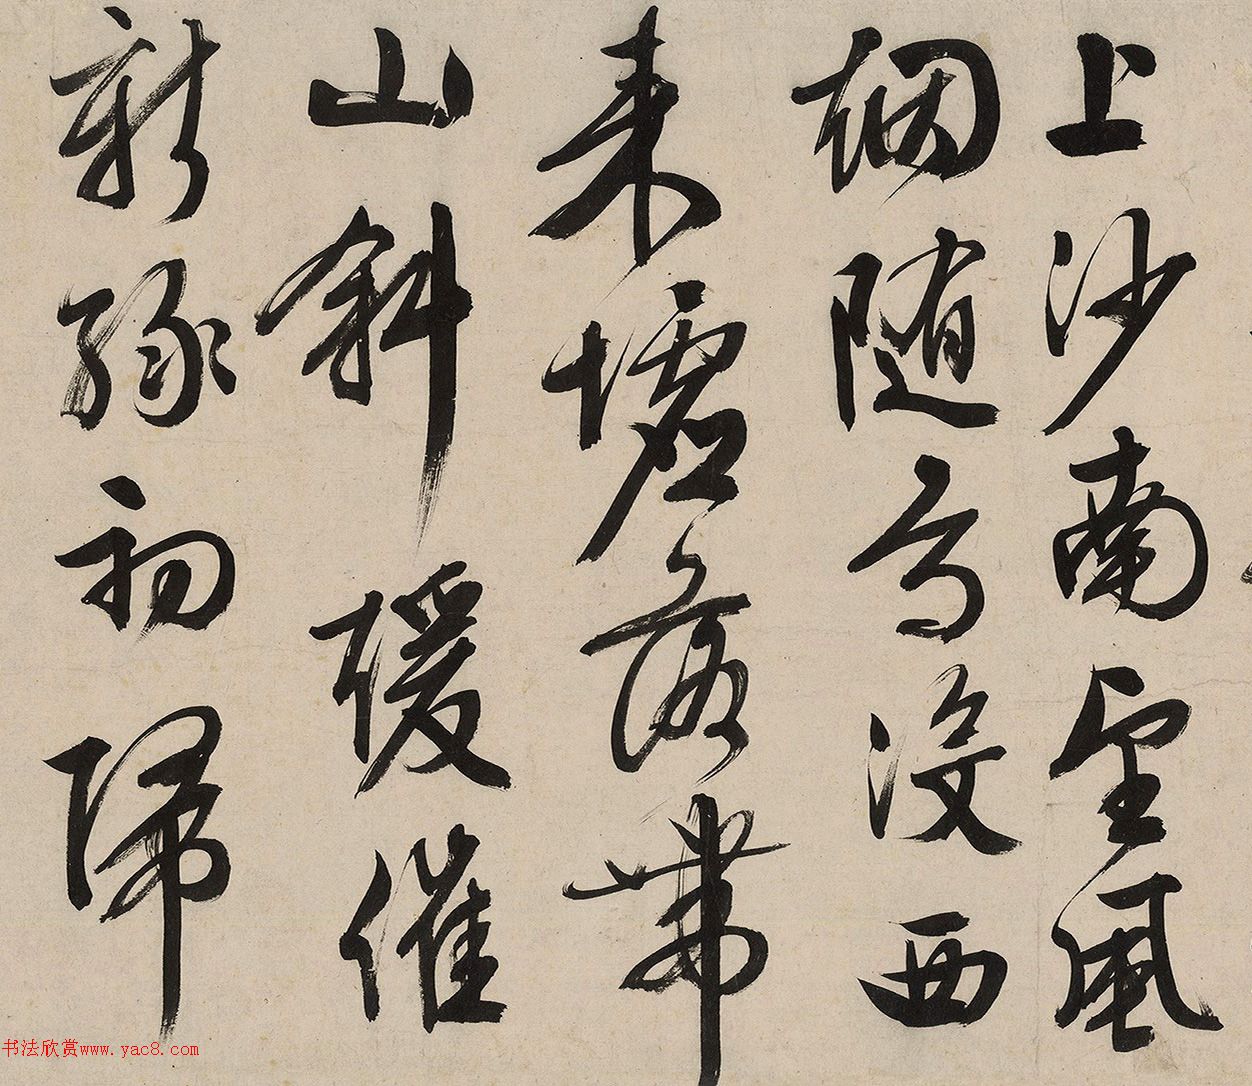 上沙南望風
烟随鳥没西
来墟落帶
山斜煖催
新緑初歸
书法欣赏www.yac8.com